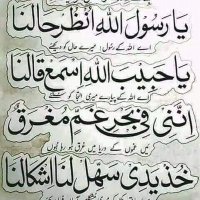 يا رسول الله انظر حالنا
اے اللہ کے رسول میرے حال کو دیکھئے
يا حبيب الله اسمع قالنا
اے اللہ کے پیارے میری التجا
إنني في بحر غم مغرق
میں غموں کے دریا میں غرق ہو رہا ہوں
خذ يدي سهل لنا أشكالنا